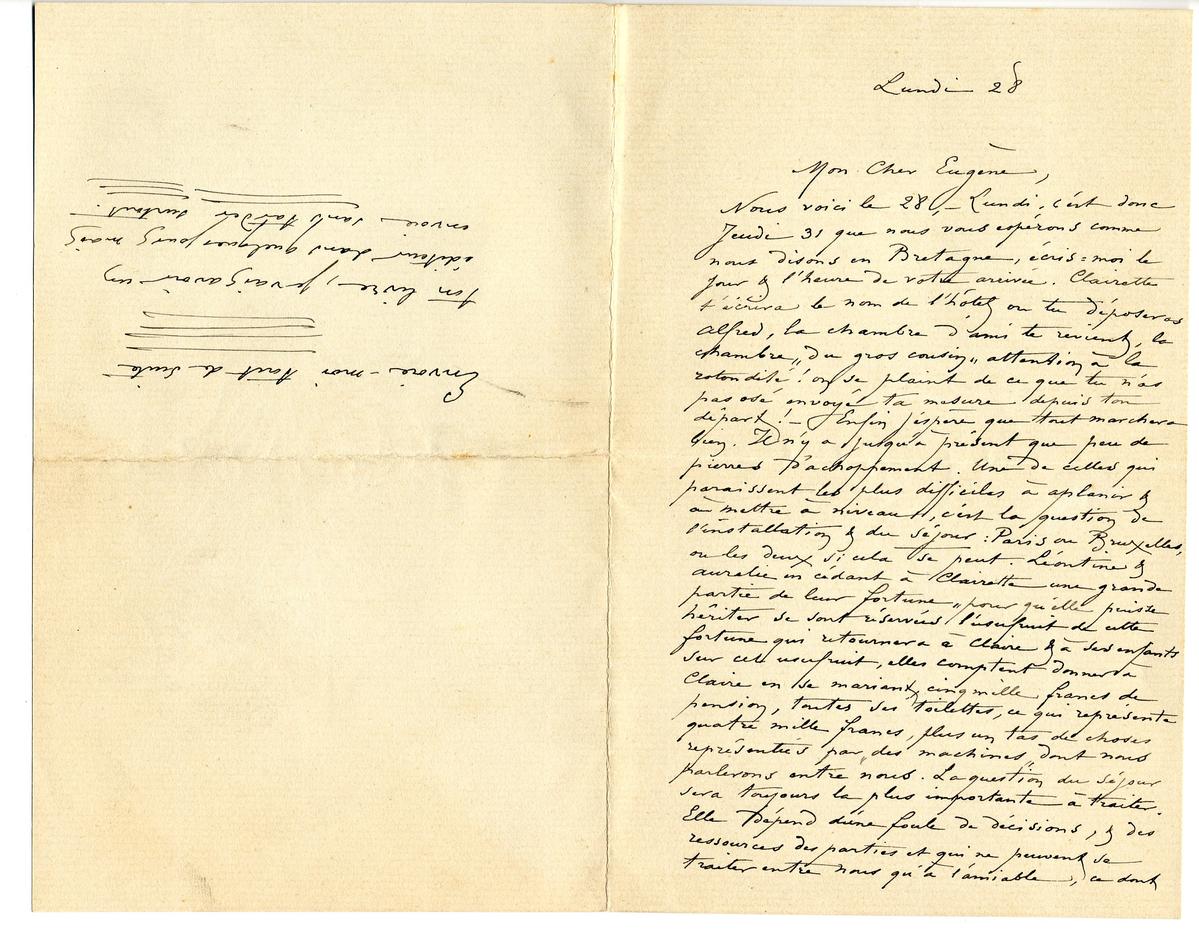 Lundi 28
Mon Cher Eugène,
Nous voici le 28, – Lundi, c'est donc
Jeudi 31 que nous vous espérons comme
nous disons en Bretagne, écris=moi le
jour & l'heure de votre arrivée. Clairette
t'écrira le nom de l'hôtel ou tu déposeras
Alfred, la chambre d'ami te revient, la
chambre „du gros cousin„ attention à la
rotondité! on se plaint de ce que tu n'as
pas osé envoyé ta mesure depuis ton
départ! – Enfin j'espère que tout marchera
bien. Il n'y a jusqu'à présent que peu de
pierres d'achoppement. Une de celles qui
paraissent les plus difficiles à aplanir &
à mettre à niveau, c'est la question de
l'installation & du séjour: Paris ou Bruxelles,
ou les deux si cela se peut. Léontine &
aurélie en cédant à Clairette une grande
partie de leur fortune „pour qu'elle puisse
hériter se sont réservées l'usufruit de cette
fortune qui retournera à Claire & à ses enfants
sur cet usufruit, elles comptent donner à
Claire en se mariant, cinq mille francs de
pension, toutes ses toilettes, ce qui représente
quatre mille francs, plus un tas de choses
représentées par „des machines„ dont nous
parlerons entre nous. La question du séjour
sera toujours la plus importante à traiter.
Elle dépend d'une foule de décisions, & des
ressources des parties et qui ne peuvent se
traiter entre nous qu'à l'amiable, ce dont
Envoie-moi tout de suite
ton livre, je vais avoir un
éditeur dans quelques jours mais
envoie sans tarder surtout.